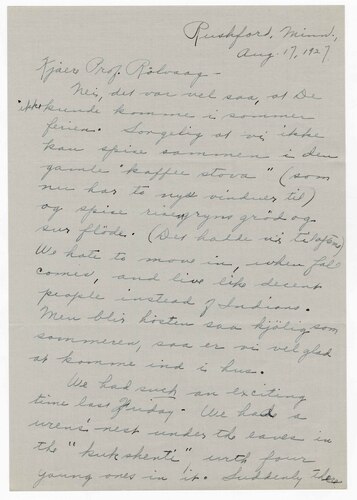 Rushford, Minn.,
Aug. 17, 1927
Kjære Prof. Rölvaag -
Nei, det var vel saa, at De
ikke kunde komme i sommer
ferien. Sörgelig at vi ikke
kan spise sammen i den
gamle "kaffee stova" (som
nu har to nye vinduer til)
og spise risengryns gröd og
sur flöde. (Det hadde vi
We hate to move in, when fall
comes, and live like decent
people instead of Indians.
Men blir hösten saa kjölig som
sommeren, saa er vi vel glad
at komme ind i hus.
We had such an exciting
time last Friday. We had a
wrens' nest under the eaves in
the " with four
young ones in it. Suddenly the